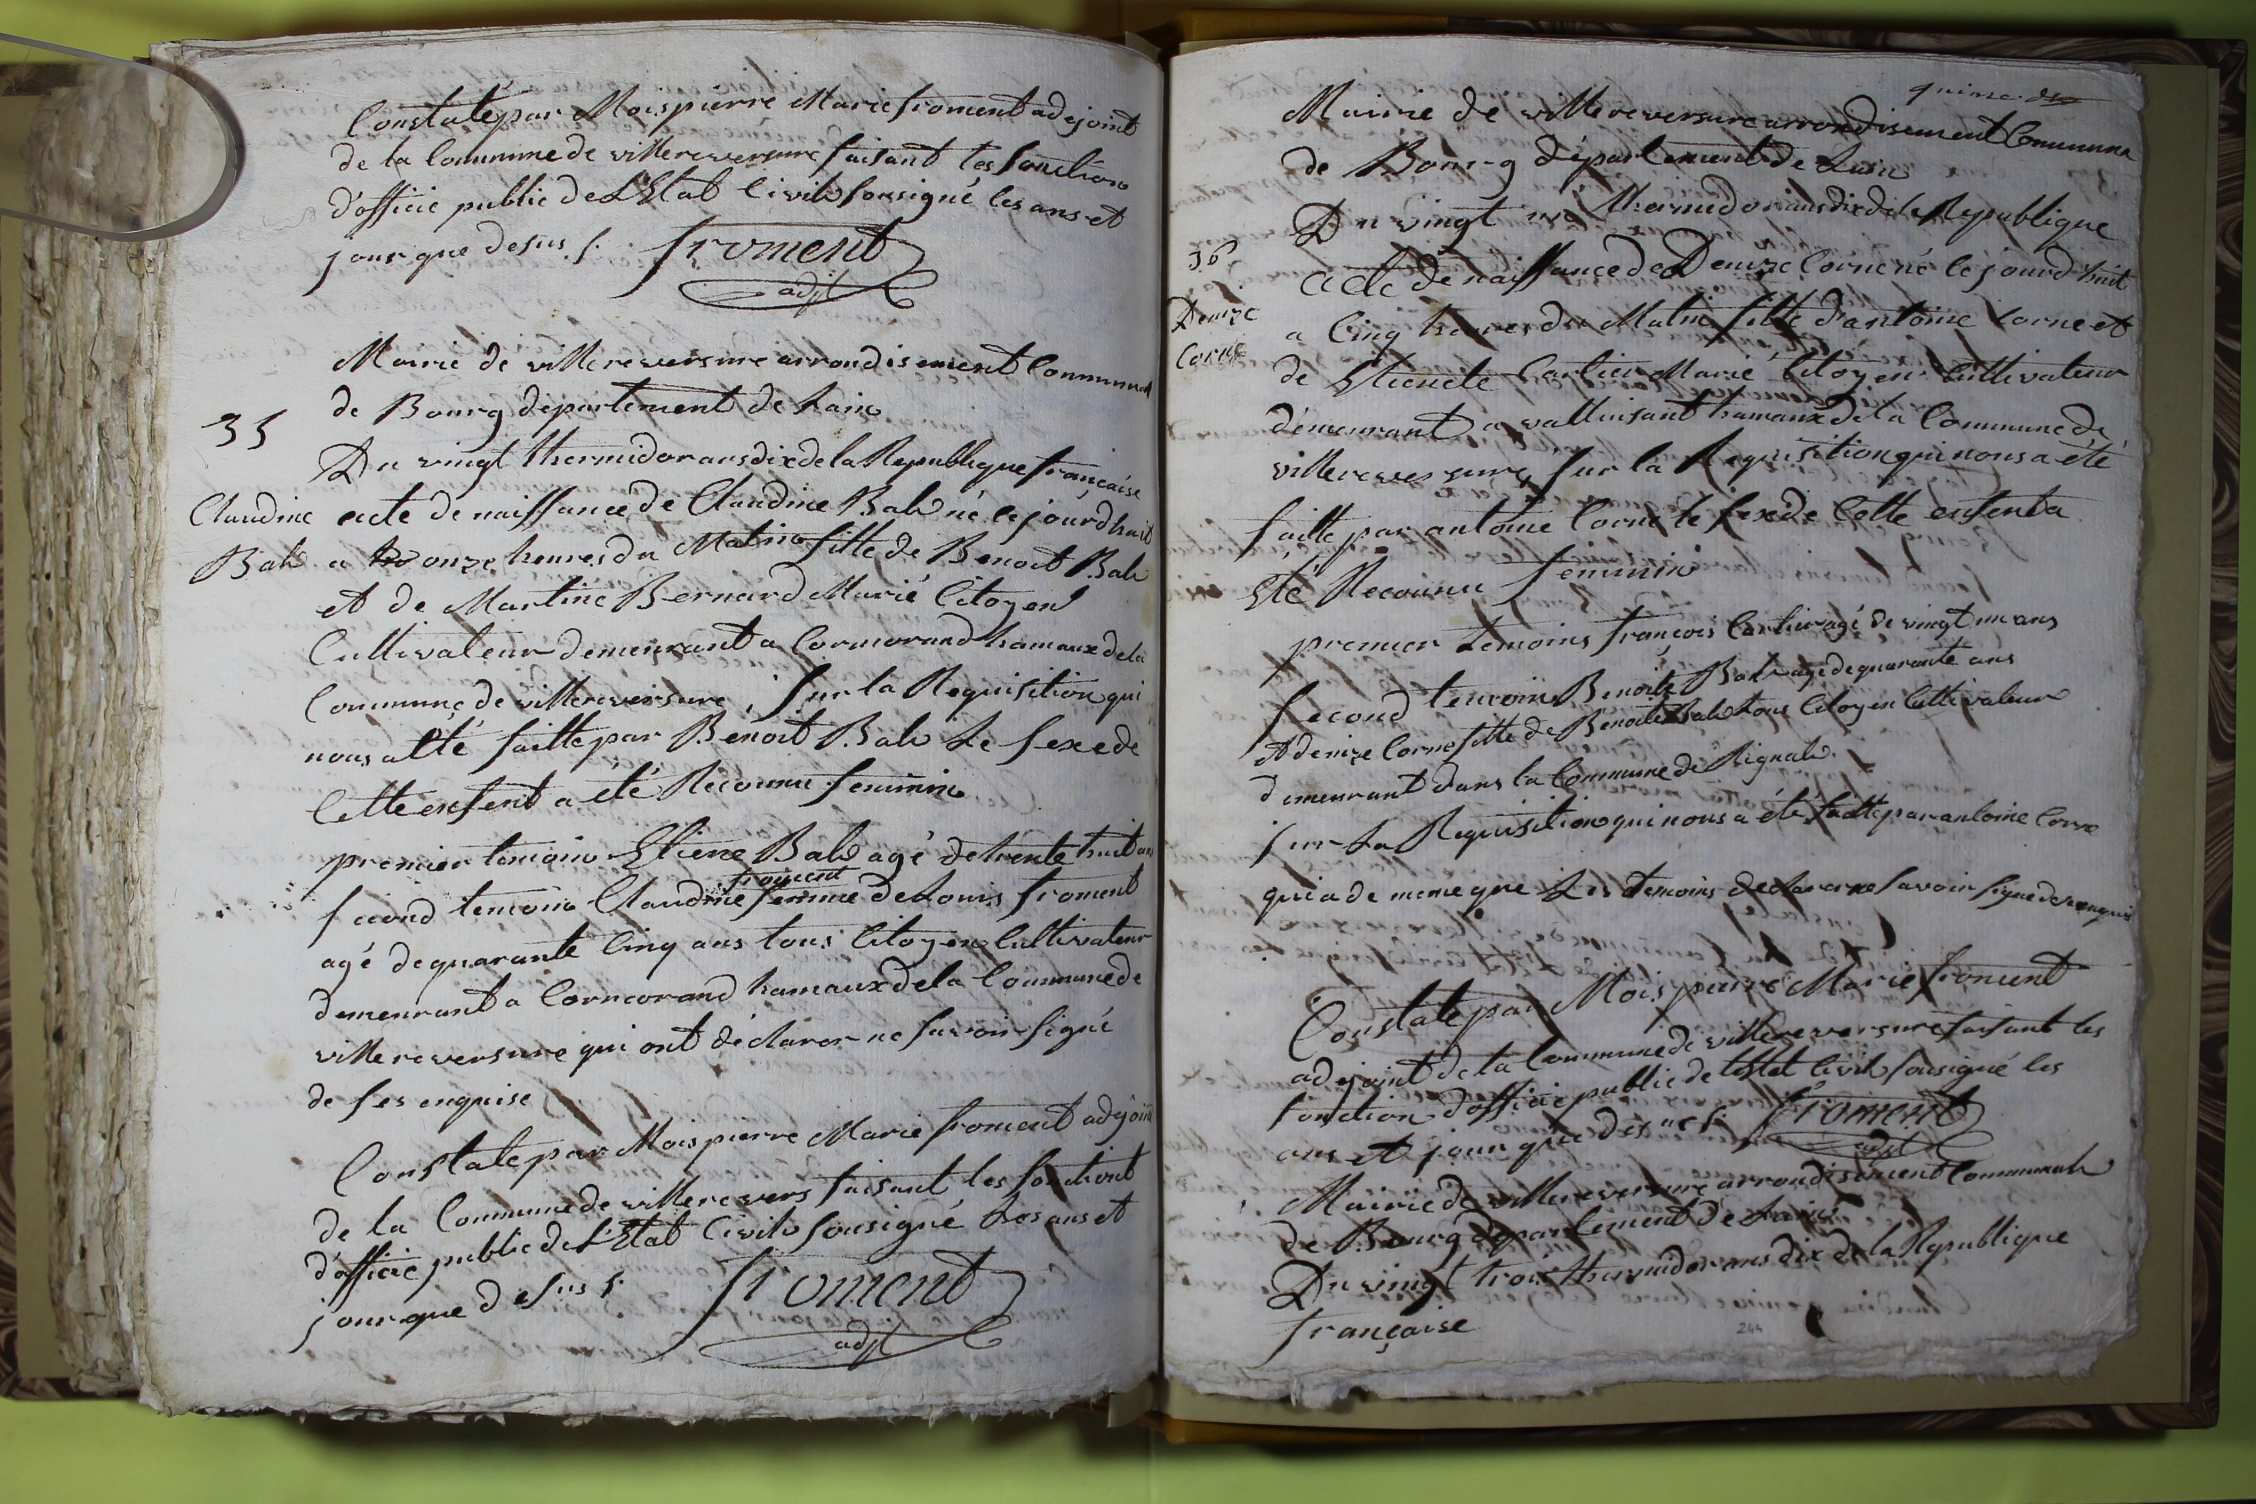 Constaté par Mois pierre Marie froment adejoint
de la Commune de villereversure faisant les fonction
d'officié public de L'Etat Civil sousigné les ans et
jour que desus ./.
froment
adjt
Mairie de villereversure arrondisement Communal
de Bourg département de Lain
35
Du vingt thermidor ans dix de la Republique française
Claudine
Bal
acte de naissance de Claudine Bal né cejourd'huit
a onze heures du Matin fille de Benoit Bal
et de Martine Bernard Marié Citoyen
Cultivateur demeurant a Cormorand hamaux dela
Commune de villereversure, sur la Requisition qui
nous a été faitte par Benoit Bal Le sexe de
Cette enfent a été Reconnu feminin
premier temoin Etiene Bal agé de trente huit ans
froment
second temoin Claudine femme de Louis froment
agé de quarante Cinq ans tous Citoyen Cultivateur
demeurant a Cormorand hamaux dela Commune de
villereversure qui ont déclarer ne savoir signé
de ses enquise
Constaté par Mois pierre Marie froment adejoint
de la Commune de villerevers faisant les fonctiont
d'officié public de L'Etat Civil sousigné Les ans et
jour que desus ./.
froment
adjt
quinze
Mairie de villereversure arrondisement Communal
de Bourg département de Lain
Du vingt un thermidor ans dix de la Republique
36
Denize
Corne
acte de naissance de Denize Corne né le jourd'huit
a Cinq heures du Matin fille d'antoine Corne et
de Etienete Carlier Marié Citoyen Cultivateur
démeurant a valluisant hamaux de la Commune de
villereversure, sur la Requisition qui nous a été
faitte par antoine Corne le sexe de Cette enfent a
Eté Reconnu feminin
premier temoins françois Carlier agé de vingt un ans
second temoin Benoite Bal agé de quarante ans
et denize Corne fille de Benoite Bal tous Citoyen Cultivateur
demeurant dans la Commune de Rignat
sur La Requisition qui nous a été faitte par antoine Corne
qui a de meme que Les temoins declarer ne savoir signé de se enquis
Constaté par Mois pierre Marie froment
adejoint de la Commune de villereversure faisant les
fonction d'officié public de létat Civil sousigné les
ans et jour que desus ./.
froment
adjt
Mairie de villereversure arrondisement Communal
de Bourg département de Lain
Du vingt trois thermidor ans dix de la Republique
française
244